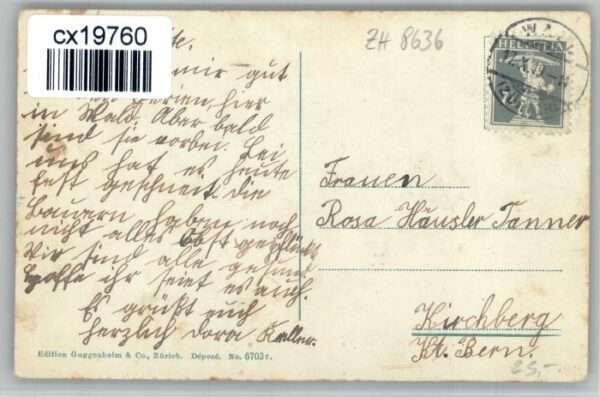 cx19760
ZH 8636
WALD
HELVETIA
mir gut
Ferien, hier
in Wald. Aber bald
sind sie vorbei. Bei
uns hat es heute
fest geschneit. Die
Bauern haben noch
nicht alles Obst gepflückt
Wir sind alle gesund
hoffe ihr seiet es auch.
Es grüßt euch
herzlich Dora Keller.
Frauen
Rosa Häusler Tanner
Kirchberg
Kt. Bern.
25,-
Edition Guggenheim & Co., Zürich. Déposé. No. 6703 r.